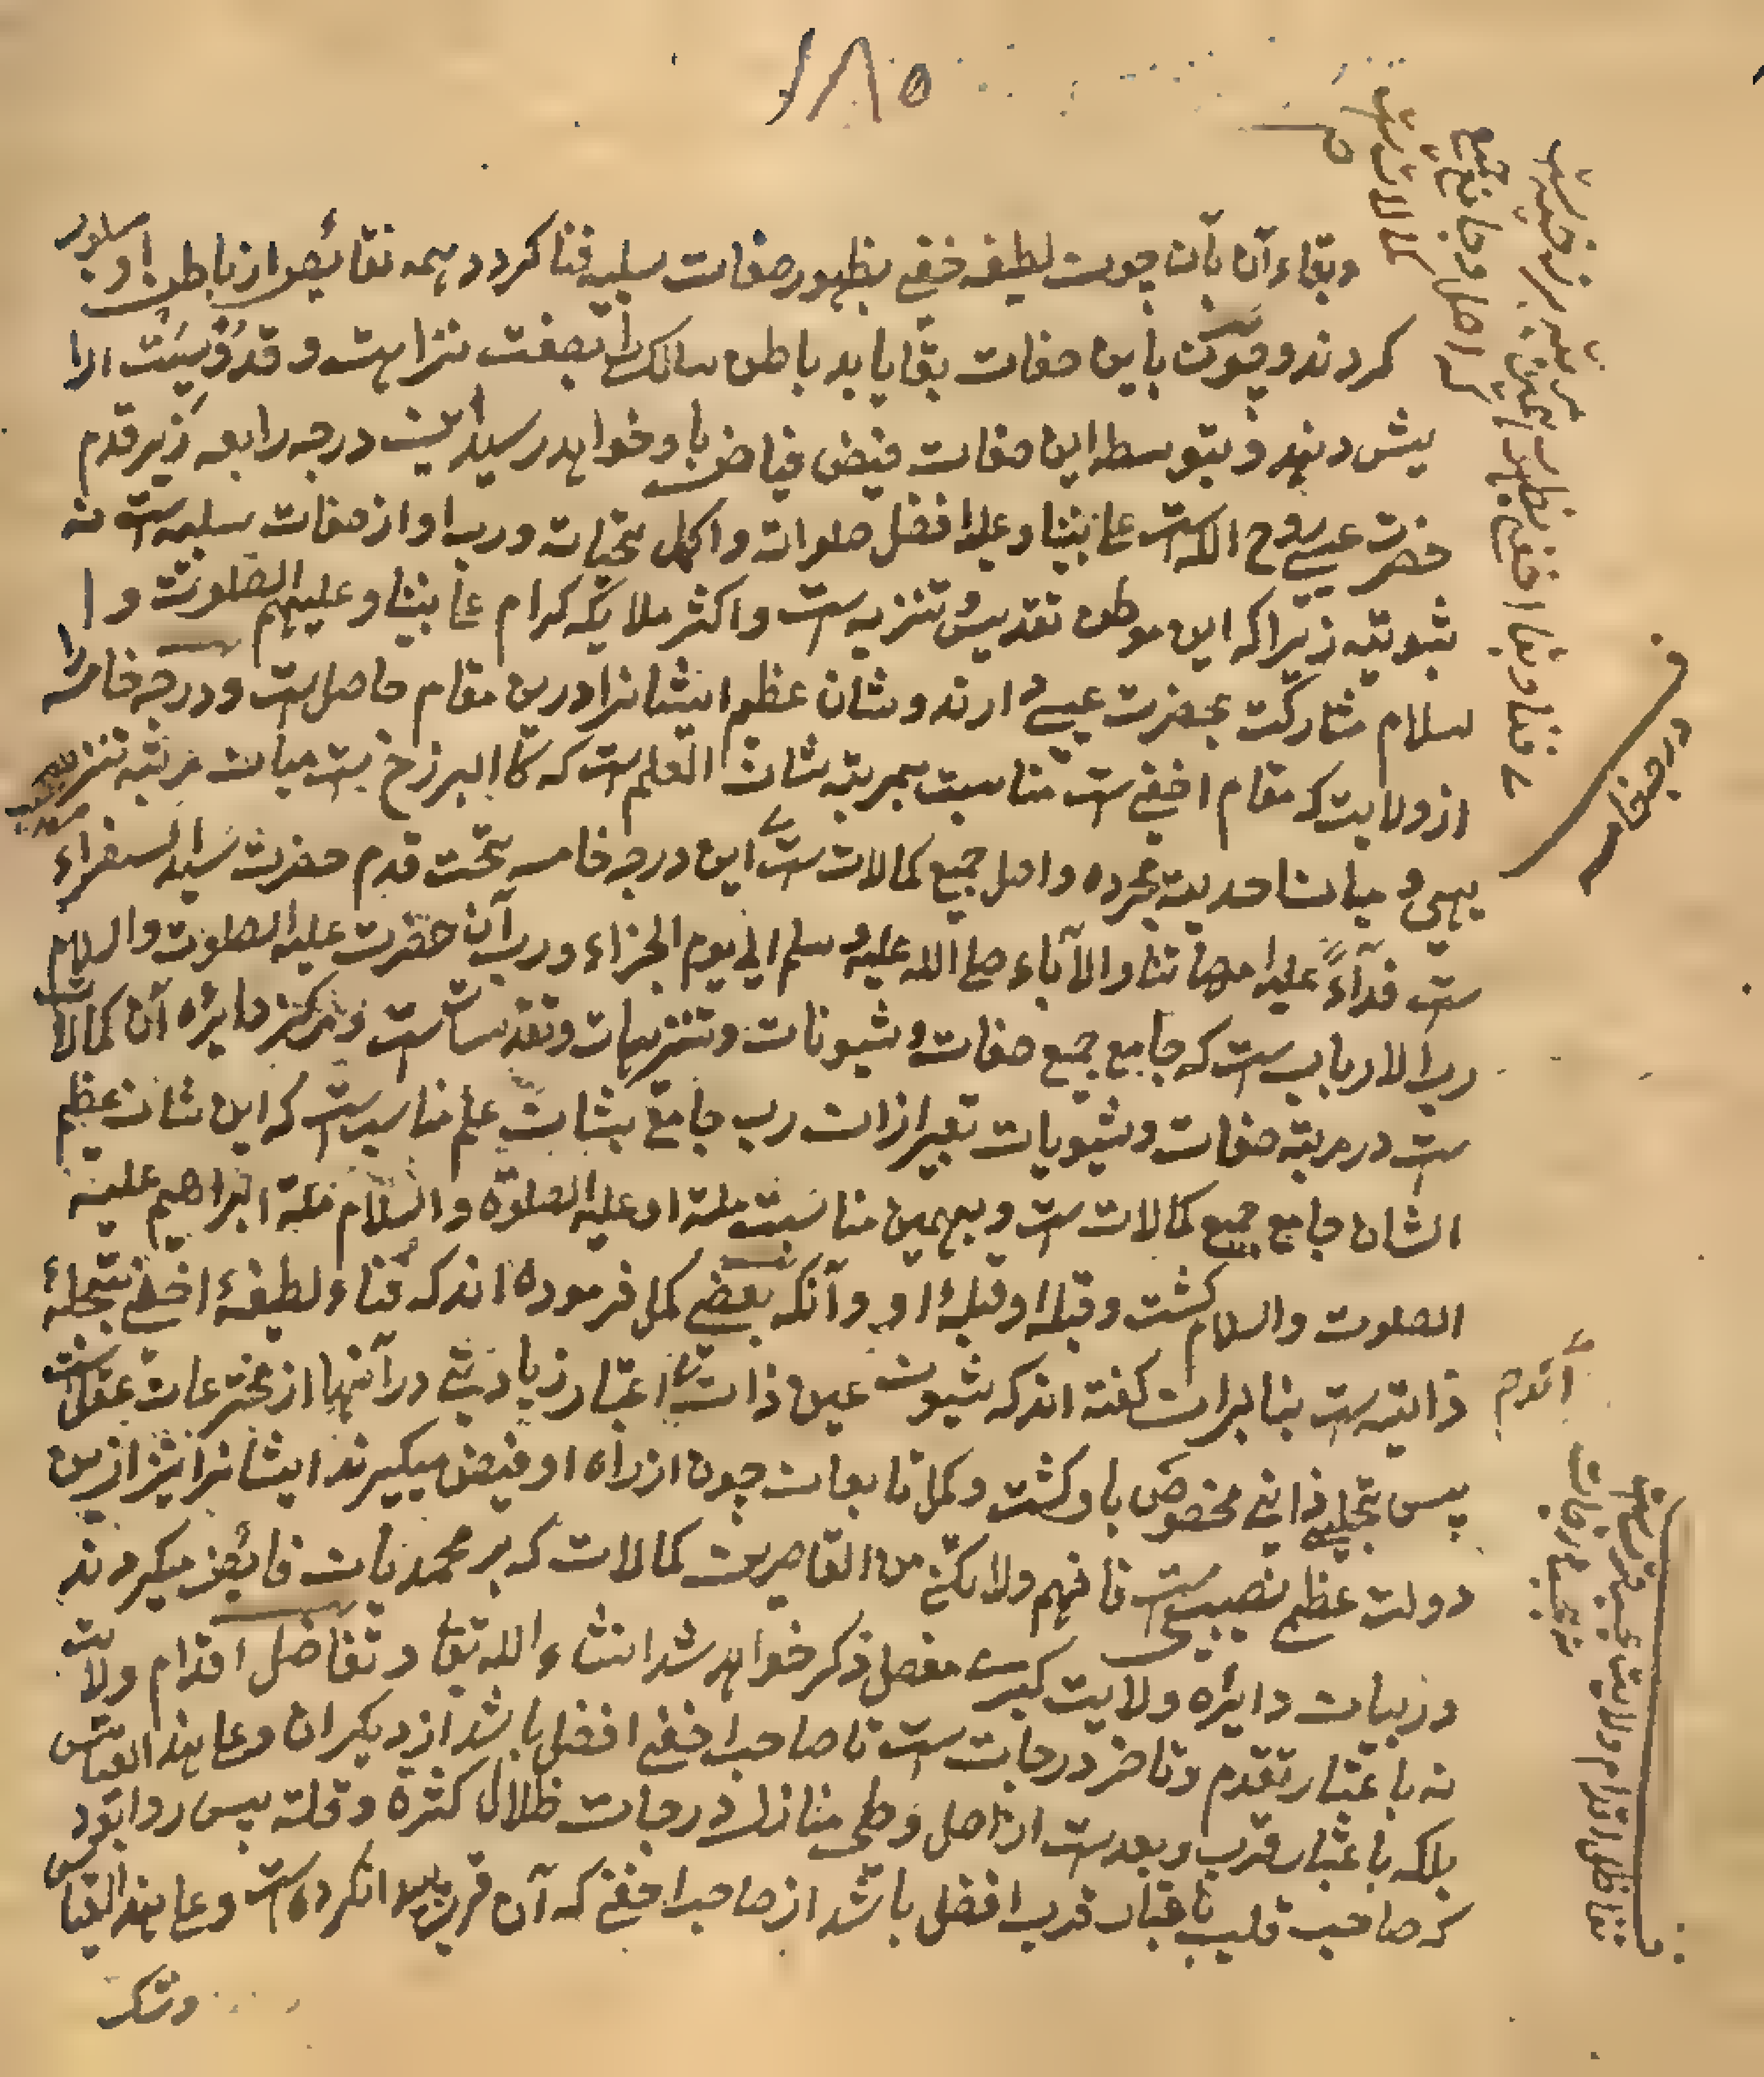 ١٨٥
وبقاء آن بآن چون لطیفه خفی بظهور صفات سلبیه فنا گردد همه نقائص از باطن او مسلوب
گردند و چون باین صفات بقا یابد باطن سالک را بصفت نزاهت و قدوسیت ارا
یش دهند و بتوسط این صفات فیض فیاض باو خواهد رسید این درجه رابعه زیر قدم
حضرت عیسی روح الله ست علی نبینا وعلیه افضل صلوات و اکمل تحیات و رب او از صفات سلبیه ست نه
ثبوتیه زیرا که این موطن تقدیس و تنزیه ست و اکثر ملایکه کرام علی نبینا وعلیهم الصلوت و ا
لسلام مشارکت بحضرت عیسی دارند و شان عظیم ایشانرا درین مقام حاصل ست و درجه خامسه
از ولایت که مقام اخفی ست مناسبت بمرتبه شان العلم ست که کالبرزخ ست میان مرتبه تنز
یهی و میان احدیت مجرده و اصل جمیع کمالات ست این درجه خامسه تحت قدم حضرت سید السفراء
ست فدآءً علیه امهاتنا والآباء صلی الله علیه وسلم الی یوم الجزاء و رب آن حضرت علیه الصلوت والسلام
رب الارباب ست که جامع جمیع صفات و شیونات و تنزیهات و تقدیسات ست و مرکز دایره آن کمالات
ست در مرتبه صفات و شیونات تعبیر ازان رب جامع بشان علم مناسب ست که این شان عظیم
الشان جامع جمیع کمالات ست و بهمین مناسبت ملة او علیه الصلوة والسلام ملة ابراهیم علیه
الصلوت والسلام گشت و قبله او قبلهٔ او و آنکه بعضی کمل فرموده اند که فناء لطیفهٔ اخفی بتجلیهٔ
ذاتیه ست بنا بران گفته اند که شیون عین ذات ست اعتبار زیادتی در آنها از مخترعات عقل ست
پس تجلی ذاتی مخصوص باو گشت و کمل تابعان چون از راه او فیض میگیرند ایشانرا نیز ازین
دولت عظمی نصیبی ست فافهم ولا تکن من القاصرین کمالات که بر محمدیان فائض میگردند
در بیان دایره ولایت کبری مفصل ذکر خواهد شد انشاء الله تعا و تفاضل اقدام ولایت
نه باعتبار تقدم و تاخر درجات ست تا صاحب اخفی افضل باشد از دیگران وعلی هذا القیاس
بلکه باعتبار قرب و بعدست از اصل و طی منازل درجات ظلال کثرة و قلة پس روا بود
که صاحب قلب باعتبار قرب افضل باشد از صاحب اخفی که آن قرب پیدا نکرده ست وعلی هذا القیاس
درجه خامسه
تفاضل اقدام ولایت